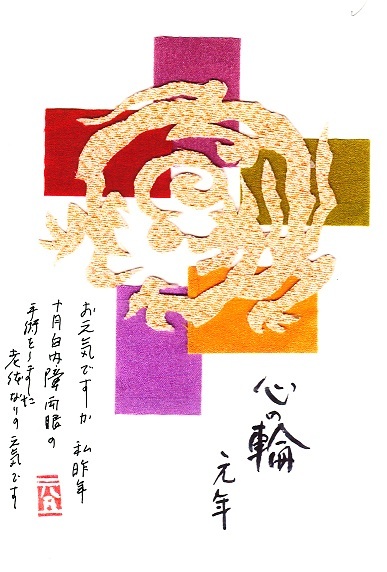 心の輪
元年
お元気ですか 私昨年
十月白内障両眼の
手術をうけました
老体なりの元気です